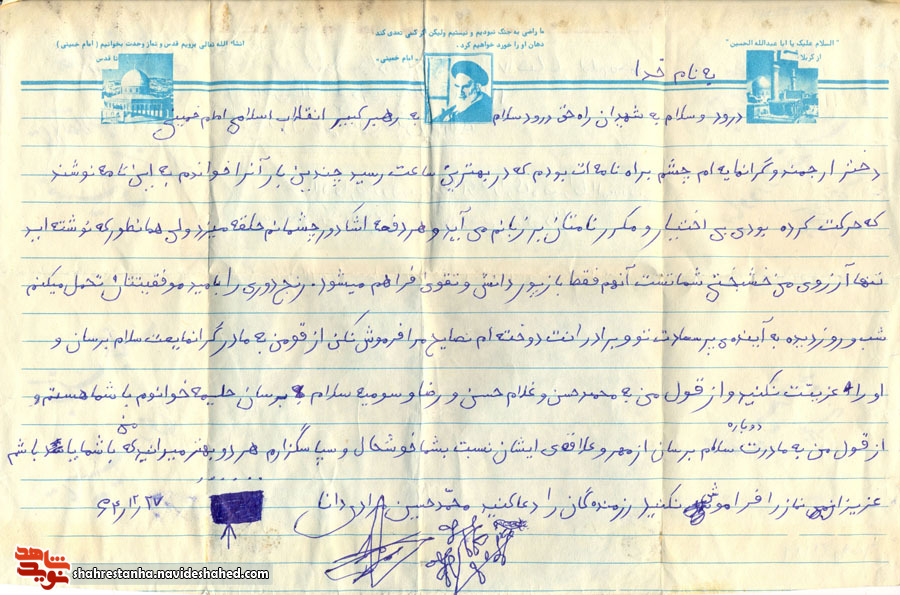 "السلام علیک یا ابا عبدالله الحسین"
از کربلا
ما راضی به جنگ نبودیم و نیستیم ولیکن اگر کسی تعدی کند
دهان او را خورد خواهیم کرد.
امام خمینی.
انشاء الله تعالی برویم قدس و نماز وحدت بخوانیم (امام خمینی)
تا قدس
به نام خدا
درود و سلام به شهیدان راه حق درود سلام به رهبر کبیر انقلاب اسلامی امام خمینی
دختر ارجمند و گرانمایه ام چشم براه نامه ات بودم که در بهترین ساعت رسید چندین بار آنرا خواندم به این نامه نوشتند
که حرکت کرده بودی بی اختیار و مکرر نامتان بر زبانم می آید و هر دفعه اشک دور چشمانم حلقه میزد ولی همانطور که نوشته اید
تنها آرزوی من خشبختی شماتشت آنهم فقط با زیور دانش و تقوی فراهم میشود. رنج دوری را بامید موفقیتتان تحمل میکنم
شب و روز دیده به آینده ی پر سعادت تو و برادرانت دوخته ام نصایح مرا فروش نکن از قومن به مادر گرانمایعت سلام برسان و
او را عزیتت نکنید و از قول من به محمد حسن و غلام حسن و رضا و سومیه سلام برسان حلیمه خوانوم با شما هستم و
از قول من به مادرت دوباره سلام برسان از مهر و علاقه ی ایشان نسبت بشما خوشحال و سپاسگزارم هر دو بهتر میدانید که با شما باید باشم
عزیزانم نماز را فراموش نکنید رزمنده گان را دعا کنید محمد حسین مرادی دانا ۲۷/۱۲/۶۴
نوید شاهد
shahrestanha.navideshahed.com